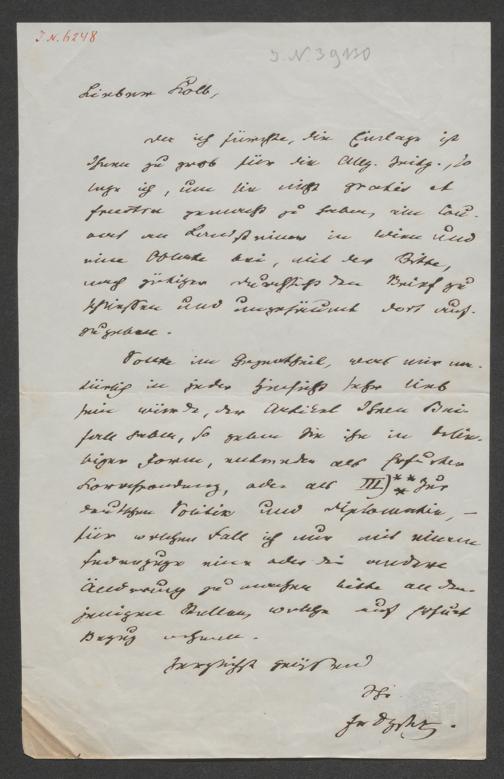 I. N. 6248
I. N. 39130
Lieber Kolb,
Da ich fürchte, die Einlage ist
Ihnen zu grob für die Allg. Zeitg., so
lege ich, um sie nicht gratis et
frustra gemacht zu haben, ein Cou-
vert an Landsteiner in Wien und
eine Oblate bei, mit der Bitte,
nach gütiger Durchsicht den Brief zu
schließen und ungesäumt dort auf-
zugeben.
Sollte im Gegentheil, was mir na-
türlich in jeder Hinsicht sehr lieb
sein würde, der Artikel Ihren Bei-
fall haben, so geben Sie ihn in belie-
biger Form, entweder als Erfurter
Korrespondenz, oder als III) *** Zur
deutschen Politik und Diplomatie, –
für welchen Fall ich nur mit einem
Federzuge eine oder die andere
Änderung zu machen bitte an den-
jenigen Stellen, welche auf Erfurt
Bezug nehmen.
Herzlichst grüßend
Ihr